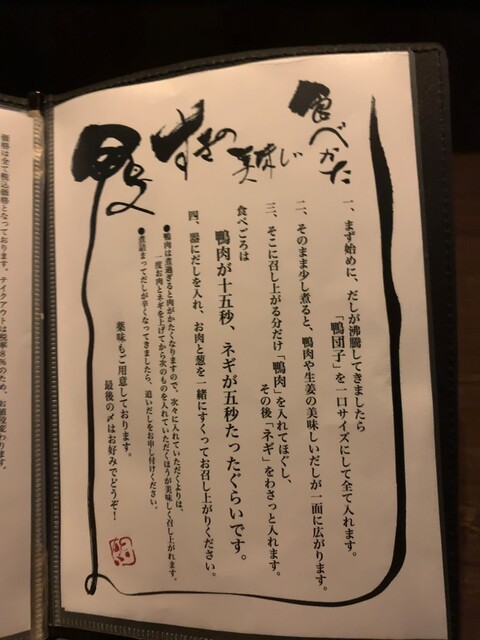 鴨すきの美味しい食べかた
一、まず始めに、だしが沸騰してきましたら
「鴨団子」を一口サイズにして全て入れます。
二、そのまま少し煮ると、鴨肉や生姜の美味しいだしが一面に広がります。
三、そこに召し上がる分だけ「鴨肉」を入れてほぐし、
その後「ネギ」をわさっと入れます。
食べごろは
鴨肉が十五秒、ネギが五秒たったぐらいです。
四、器にだしを入れ、お肉と葱を一緒にすくってお召し上がりください。
●鴨肉は煮過ぎると肉がかたくなりますので、次々に入れていただくよりは、
一度お肉とネギを上げてから次のものを入れていただくほうが美味しく召し上がれます。
●煮詰まってだしが辛くなってきましたら、追いだしをお申し付けください。
薬味もご用意しております。
最後の〆はお好みでどうぞ！
価格は全て税込価格となっております。テイクアウトは税率8%のため、お値段変わります。